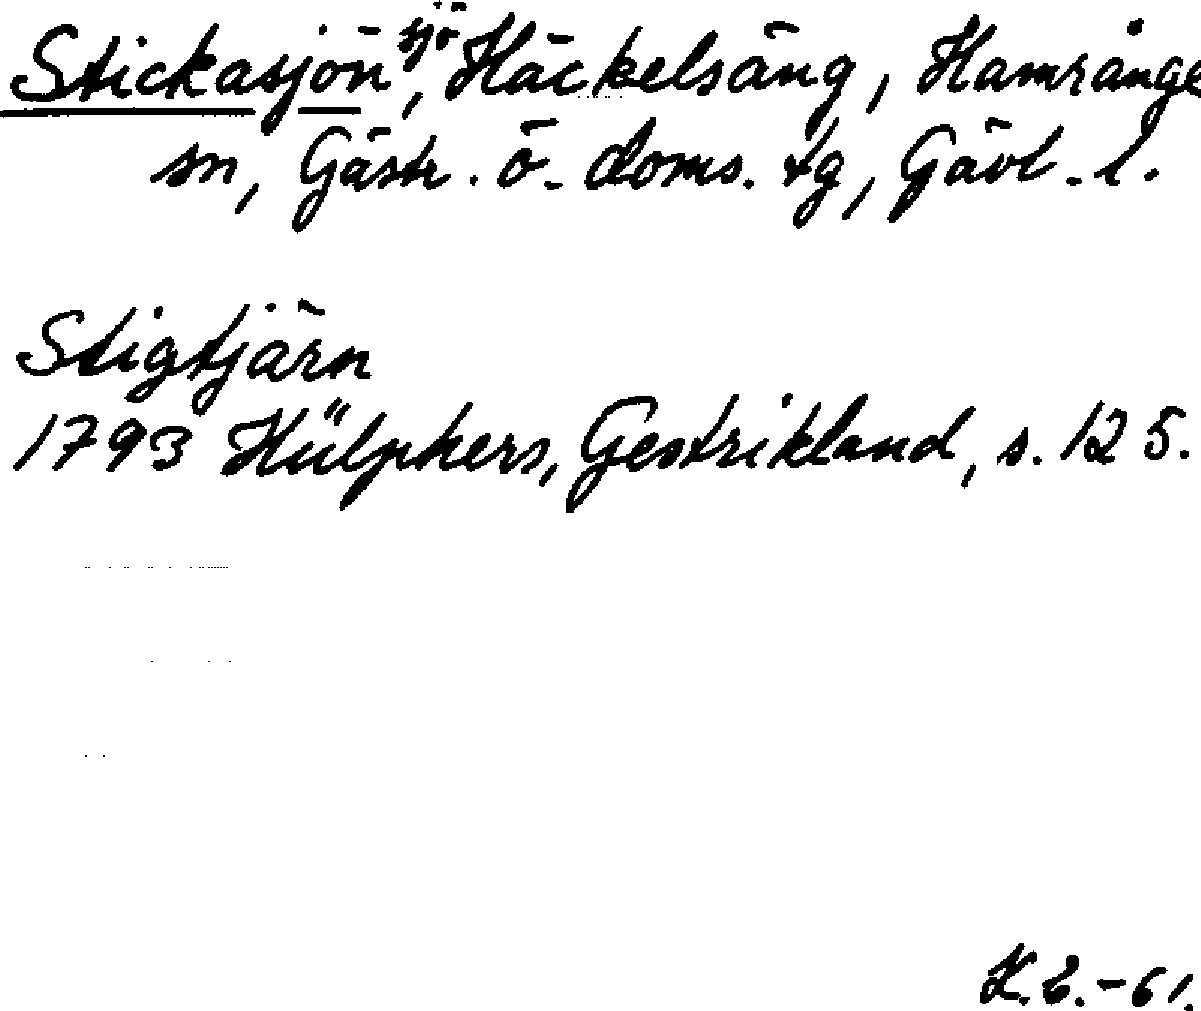 Stickasjön, sjö, Häckelsäng, Hamrånge
sn, Gästr. ö. doms. tg, Gävl. l.
Stigtjärn
1793 Hülphers, Gestrikland, s. 125.
K.E.-61.